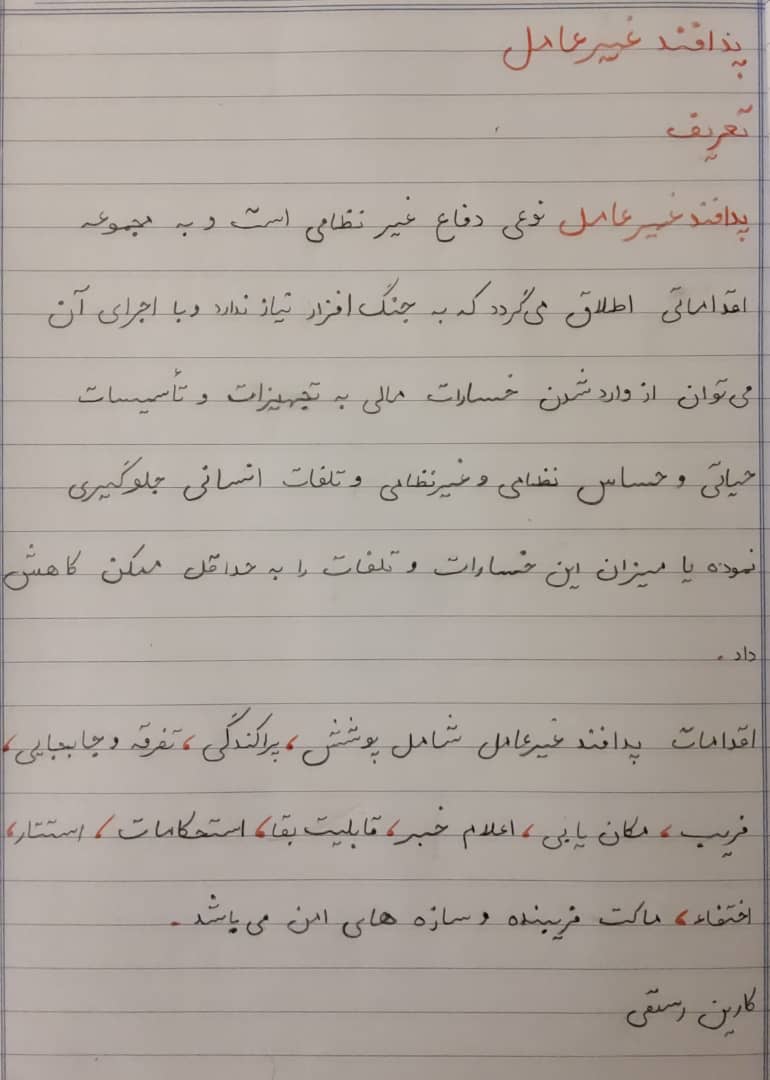 پدافند غیرعامل
تعریف
پدافند غیرعامل نوعی دفاع غیر نظامی است و به مجموعه
اقداماتی اطلاق می‌گردد که به جنگ افزار نیاز ندارد و با اجرای آن
می‌توان از وارد شدن خسارات مالی به تجهیزات و تأسیسات
حیاتی و حساس نظامی و غیرنظامی و تلفات انسانی جلوگیری
نموده یا میزان این خسارات و تلفات را به حداقل ممکن کاهش
داد.
اقدامات پدافند غیرعامل شامل پوشش، پراکندگی، تفرقه و جابجایی،
فریب، مکان یابی، اعلام خبر، قابلیت بقا، استحکامات، استتار،
اختفاء، ماکت فریبنده و سازه های امن می باشد.
کارین